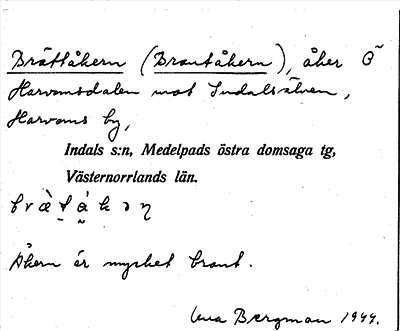 Brättåkern (Brantåkern), åker Ö
Harvomsdalen mot Indalsälven,
Harvoms by,
Indals s:n, Medelpads östra domsaga tg,
Västernorrlands län.
Åkern är mycket brant.
Una Bergman 1944.